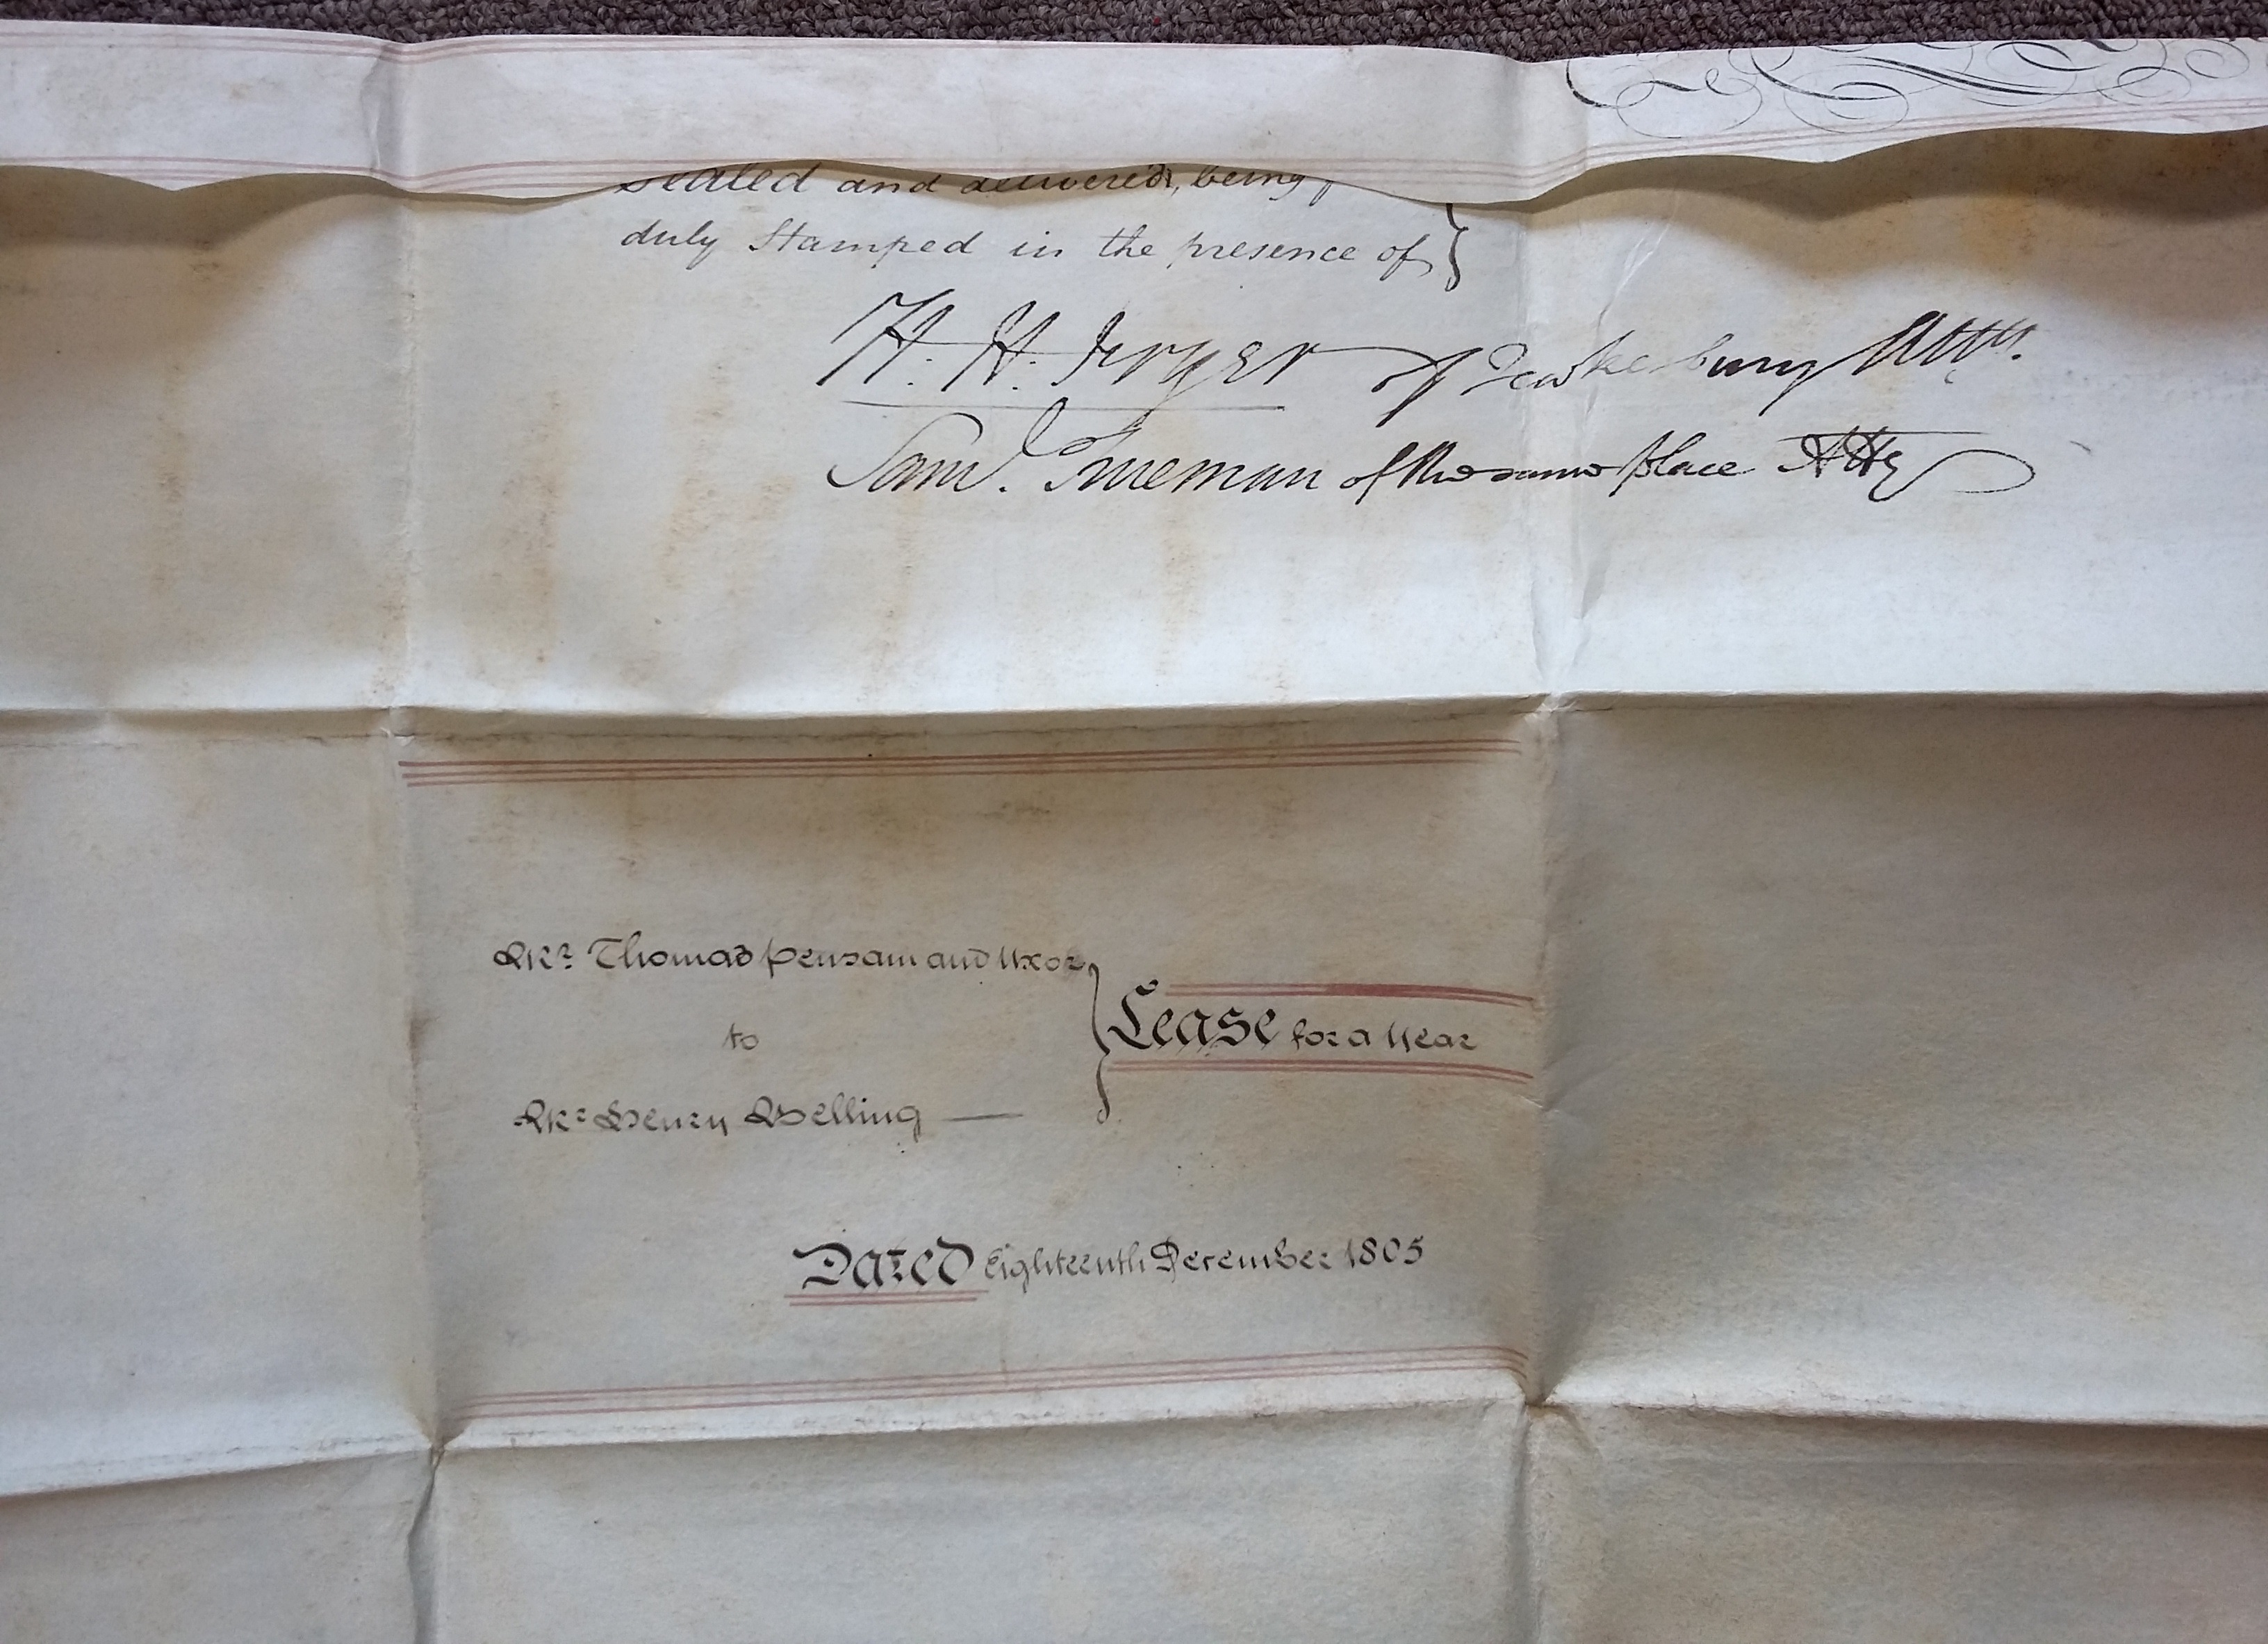 sealed and delivered, being
duly Stamped in the presence of
H. H. Fryer of Tewkesbury Atty.
Saml. Trueman of the same place Atty
Mr. Thomas Pensam and Uxor
to
Mr. Henry Welling
Lease for a Year
Dated Eighteenth December 1805